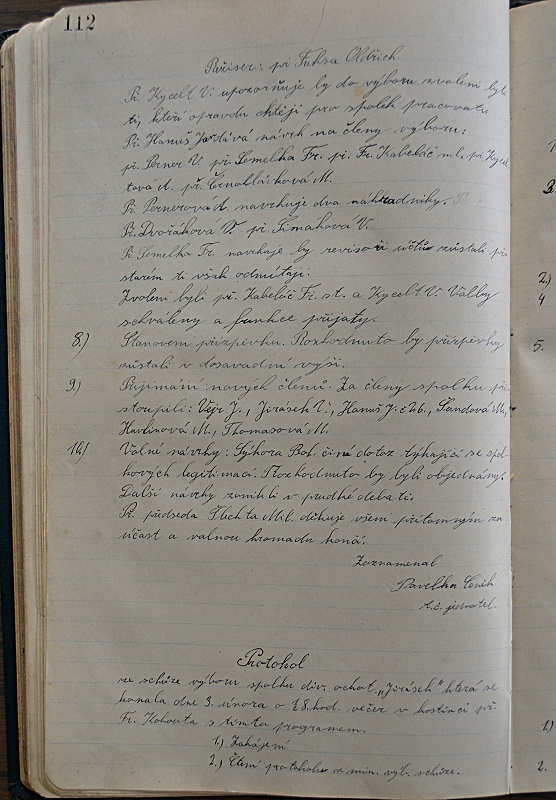 112
Režiser: př. Fuksa Oldřich
Př. Kycelt V. upozorňuje by do výboru zvoleni byli
ti, kteří opravdu chtějí pro spolek pracovati.
Př. Hanuš J. dává návrh na členy výboru:
př. Perner V. př. Semelka Fr. př. Fr. Kabeláč ml. př. Kycel
tova A. př. Černohlávková M.
Př. Pernerová A. navrhuje dva náhradníky.
Př. Dvořákova V. př. Šimáková V.
Př. Semelka Fr. navrhuje by revisoři účtů zůstali při
starém ti však odmítají.
Zvoleni byli př. Kabeláč Fr. st. a Kycelt V. Volby
schváleny a funkce přijaty.
8.) Stanovení příspěvku. Rozhodnuto by příspěvky
zůstali v dosavadní výši.
9.) Přijímání nových členů. Za členy spolku při
stoupili: Vejr J., Jirásek V., Hanuš J. č. 6., Šandová M.,
Havlínová M., Thomasová M.
10.) Volné návrhy: Sýkora Boh. činí dotaz týkající se spol
kových legitimací. Rozhodnuto by byli objednány.
Další návrhy zanikli v prudké debatě.
Př. předseda Šlechta Mil. děkuje všem přítomným za
účast a valnou hromadu končí.
Zaznamenal
Pavelka Čeněk
t. č. jednatel.
Protokol
ze schůze výboru spolku div. ochot. „Jirásek" která se
konala dne 3. února o 18 hod. večer v hostinci př.
Fr. Kohouta s tímto programem.
1.) Zahájení
2.) Čtení protokolu z min. výb. schůze.
1)
3.
2.)
4
5.
1.)
2.